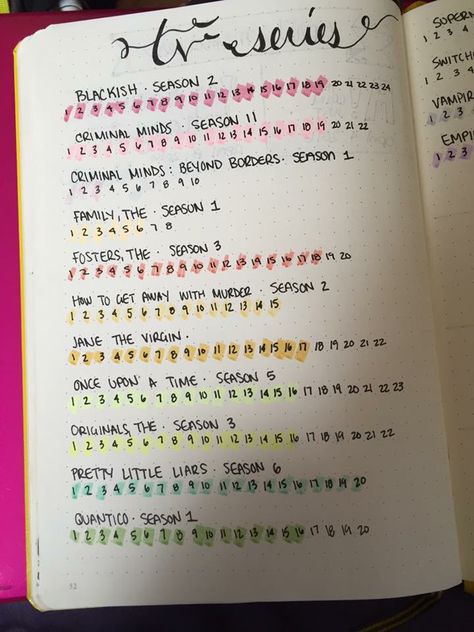 tv series
BLACKISH · SEASON 2
1 2 3 4 5 6 7 8 9 10 11 12 13 14 15 16 17 18 19 20 21 22 23 24
CRIMINAL MINDS · SEASON 11
1 2 3 4 5 6 7 8 9 10 11 12 13 14 15 16 17 18 19 20 21 22
CRIMINAL MINDS: BEYOND BORDERS · SEASON 1
1 2 3 4 5 6 7 8 9 10
FAMILY, THE · SEASON 1
1 2 3 4 5 6 7 8
FOSTERS, THE · SEASON 3
1 2 3 4 5 6 7 8 9 10 11 12 13 14 15 16 17 18 19 20
HOW TO GET AWAY WITH MURDER · SEASON 2
1 2 3 4 5 6 7 8 9 10 11 12 13 14 15
JANE THE VIRGIN ·
1 2 3 4 5 6 7 8 9 10 11 12 13 14 15 16 17 18 19 20 21 22
ONCE UPON A TIME · SEASON 5
1 2 3 4 5 6 7 8 9 10 11 12 13 14 15 16 17 18 19 20 21 22 23
ORIGINALS, THE · SEASON 3
1 2 3 4 5 6 7 8 9 10 11 12 13 14 15 16 17 18 19 20 21 22
PRETTY LITTLE LIARS · SEASON 6
1 2 3 4 5 6 7 8 9 10 11 12 13 14 15 16 17 18 19 20
QUANTICO · SEASON 1
1 2 3 4 5 6 7 8 9 10 11 12 13 14 15 16 17 18 19 20
92
SUPER
1 2 3 4
SWITCH
1 2 3 4
VAMPIR
1 2 3
EMPI
1 2 3